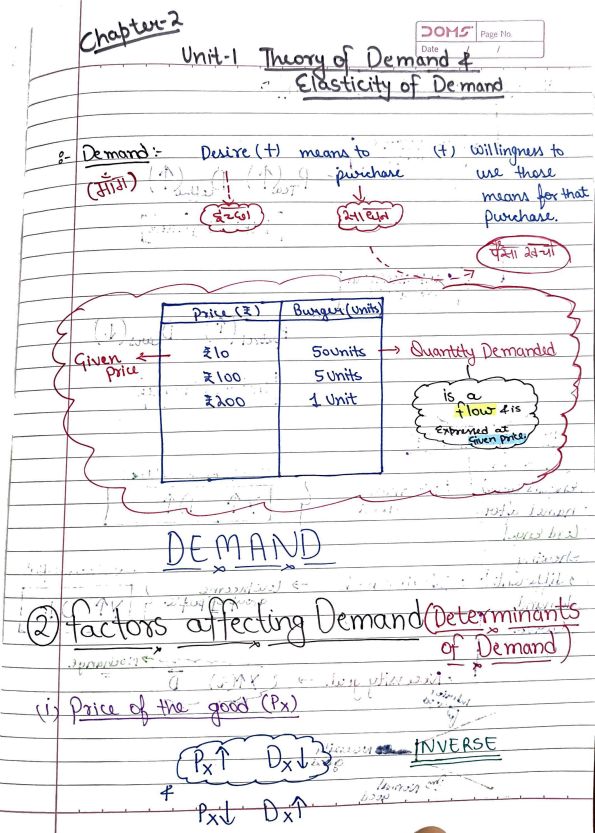 Chapter-2
DOMS Page No.
Date / /
Unit-1 Theory of Demand &
Elasticity of Demand
Demand :- Desire (+) means to (+) willingness to
(माँग) purchase use those
means for that
purchase.
इच्छा साधन
पैसा खर्चा
Price (₹) Burger (Units)
Given Price ← ₹10 50 Units → Quantity Demanded
₹100 5 Units
₹200 1 Unit
is a
flow & is
Expressed at
Given price.
DEMAND
② factors affecting Demand (Determinants
of Demand)
(i) Price of the good (Px)
Px↑ Dx↓ INVERSE
&
Px↓ Dx↑